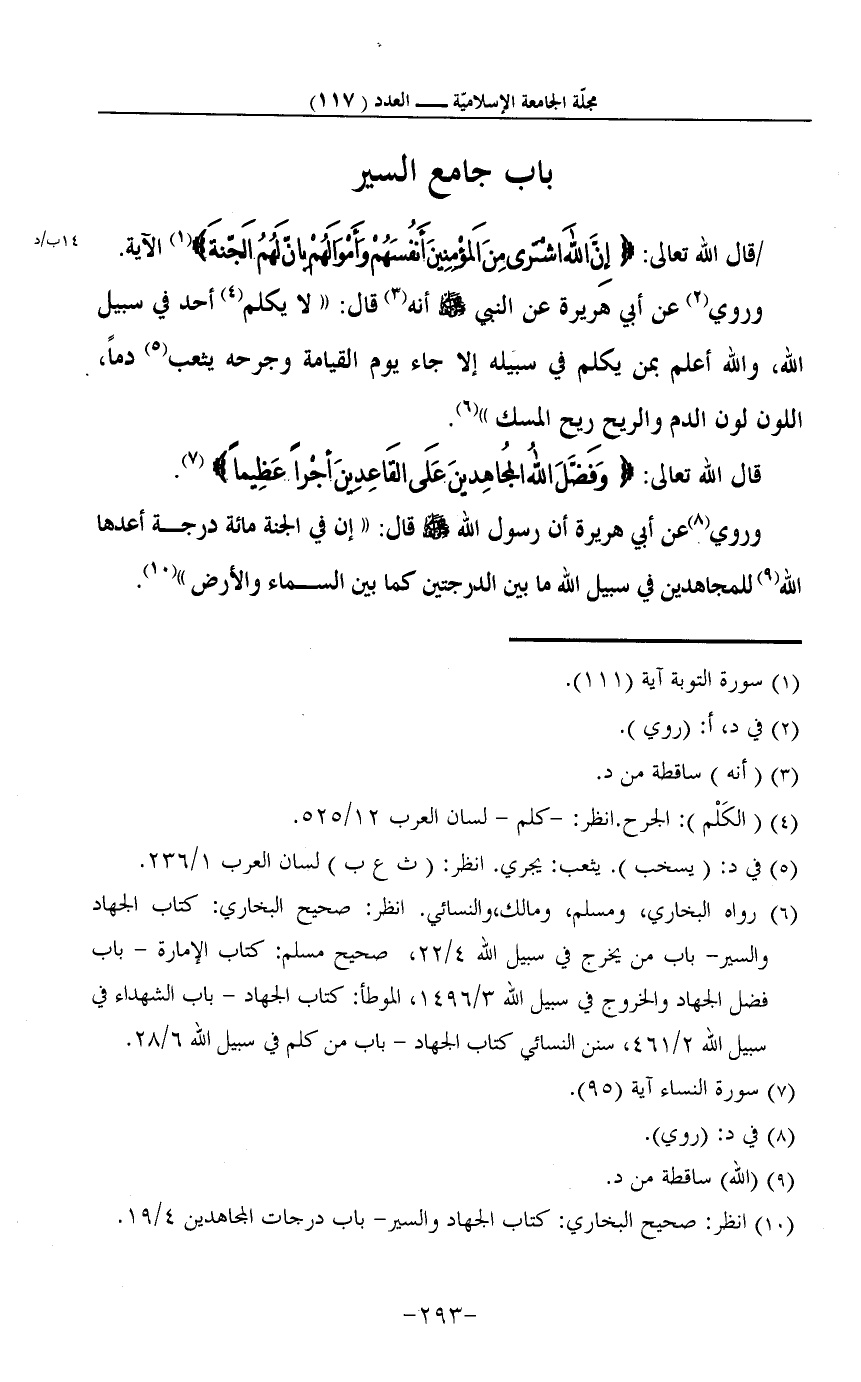 مجلّة الجامعة الإسلاميّة ـــ العدد (١١٧)
باب جامع السير
/قال الله تعالى: ﴿ إِنَّ اللَّهَ اشْتَرَى مِنَ الْمُؤْمِنِينَ أَنْفُسَهُمْ وَأَمْوَالَهُمْ بِأَنَّ لَهُمُ الْجَنَّةَ ﴾(١) الآية. ١٤ب/د
وروي(٢) عن أبي هريرة عن النبي ﷺ أنه(٣) قال: « لا يكلم(٤) أحد في سبيل
الله، والله أعلم بمن يكلم في سبيله إلا جاء يوم القيامة وجرحه يثعب(٥) دماً،
اللون لون الدم والريح ريح المسك »(٦).
قال الله تعالى: ﴿ وَفَضَّلَ اللَّهُ الْمُجَاهِدِينَ عَلَى الْقَاعِدِينَ أَجْراً عَظِيماً ﴾ (٧).
وروي(٨)عن أبي هريرة أن رسول الله ﷺ قال: « إن في الجنة مائة درجــة أعدها
الله(٩) للمجاهدين في سبيل الله ما بين الدرجتين كما بين الســماء والأرض »(١٠).
(١) سورة التوبة آية (١١١).
(٢) في د، أ: (روي ).
(٣) ( أنه ) ساقطة من د.
(٤) ( الكَلْم ): الجرح.انظر: -كلم - لسان العرب ٥٢٥/١٢.
(٥) في د: ( يسخب ). يثعب: يجري. انظر: ( ث ع ب ) لسان العرب ٢٣٦/١.
(٦) رواه البخاري، ومسلم، ومالك،والنسائي. انظر: صحيح البخاري: كتاب الجهاد
والسير- باب من يخرج في سبيل الله ٢٢/٤، صحيح مسلم: كتاب الإمارة - باب
فضل الجهاد والخروج في سبيل الله ١٤٩٦/٣، الموطأ: كتاب الجهاد - باب الشهداء في
سبيل الله ٤٦١/٢، سنن النسائي كتاب الجهاد - باب من كلم في سبيل الله ٢٨/٦.
(٧) سورة النساء آية (٩٥).
(٨) في د: (روي).
(٩) (الله) ساقطة من د.
(١٠) انظر: صحيح البخاري: كتاب الجهاد والسير- باب درجات المجاهدين ١٩/٤.
-٢٩٣-